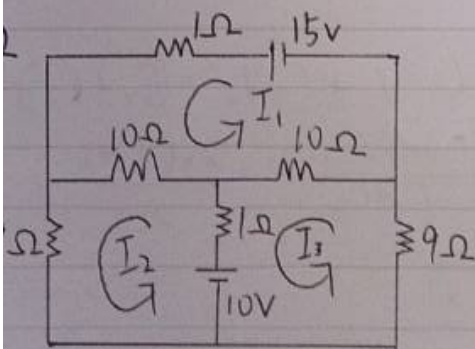 1Ω 15v
I₁
10Ω 10Ω
Ω I₂ 1Ω I₃ 9Ω
10V